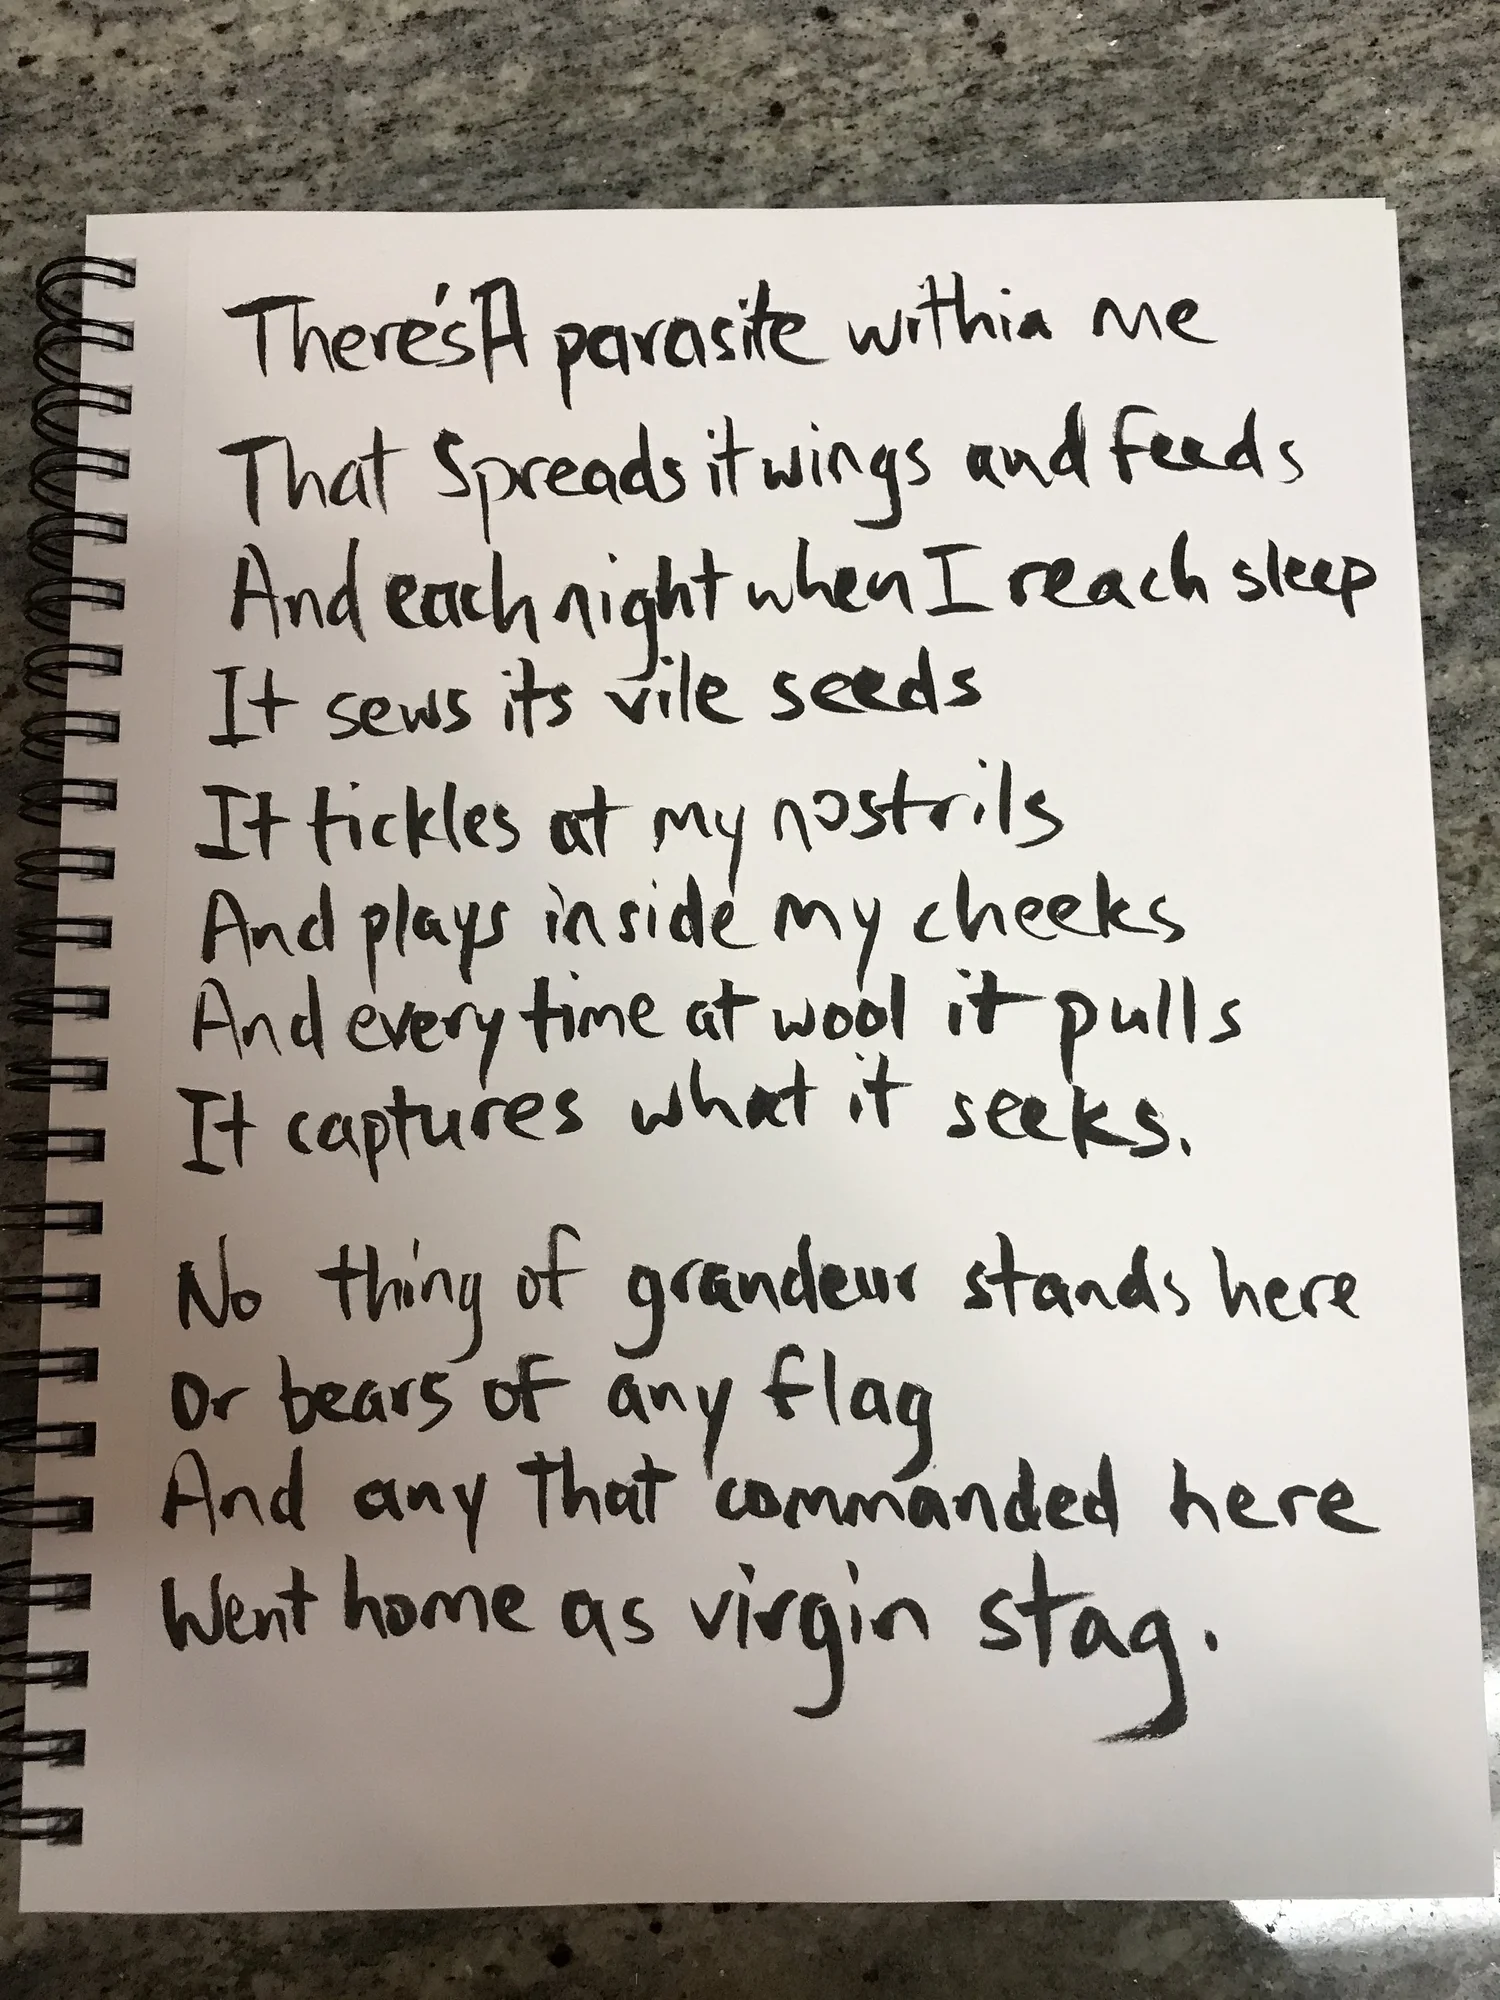 There's A parasite within me
That Spreads it wings and feeds
And each night when I reach sleep
It sews its vile seeds
It tickles at my nostrils
And plays inside my cheeks
And every time at wool it pulls
It captures what it seeks.
No thing of grandeur stands here
Or bears of any flag
And any that commanded here
Went home as virgin stag.